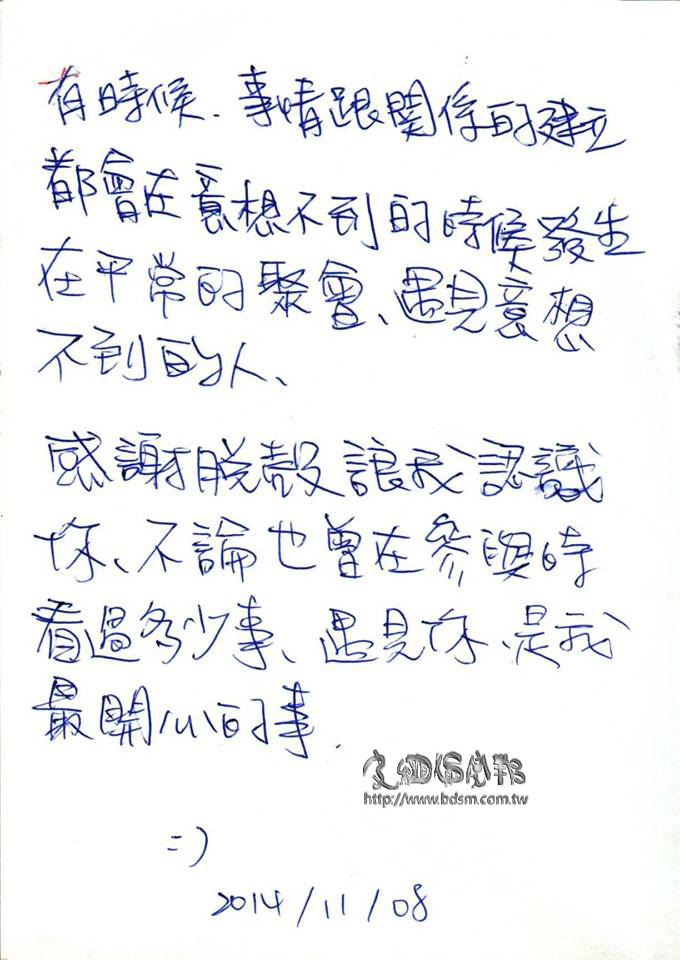 有時候. 事情跟關係的建立
都會在意想不到的時候發生
在平常的聚會、遇見意想
不到的人、
感謝脫殼讓我認識
你、不論也曾在參與時
看過多少事、遇見你、是我
最開心的事.
http://www.bdsm.com.tw
=)
2014/11/08